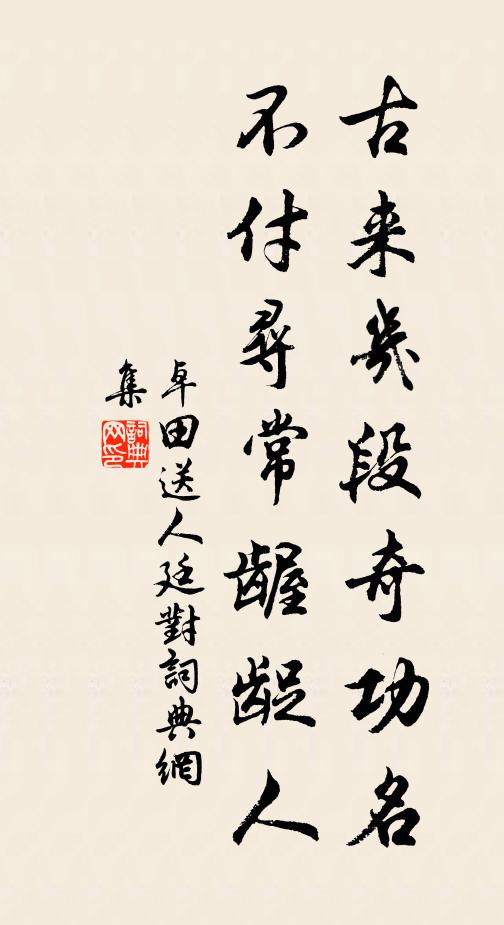 古来幾段奇功名
不付尋常齷齪人
卓田送人廷對詞典網
集
詞典网印